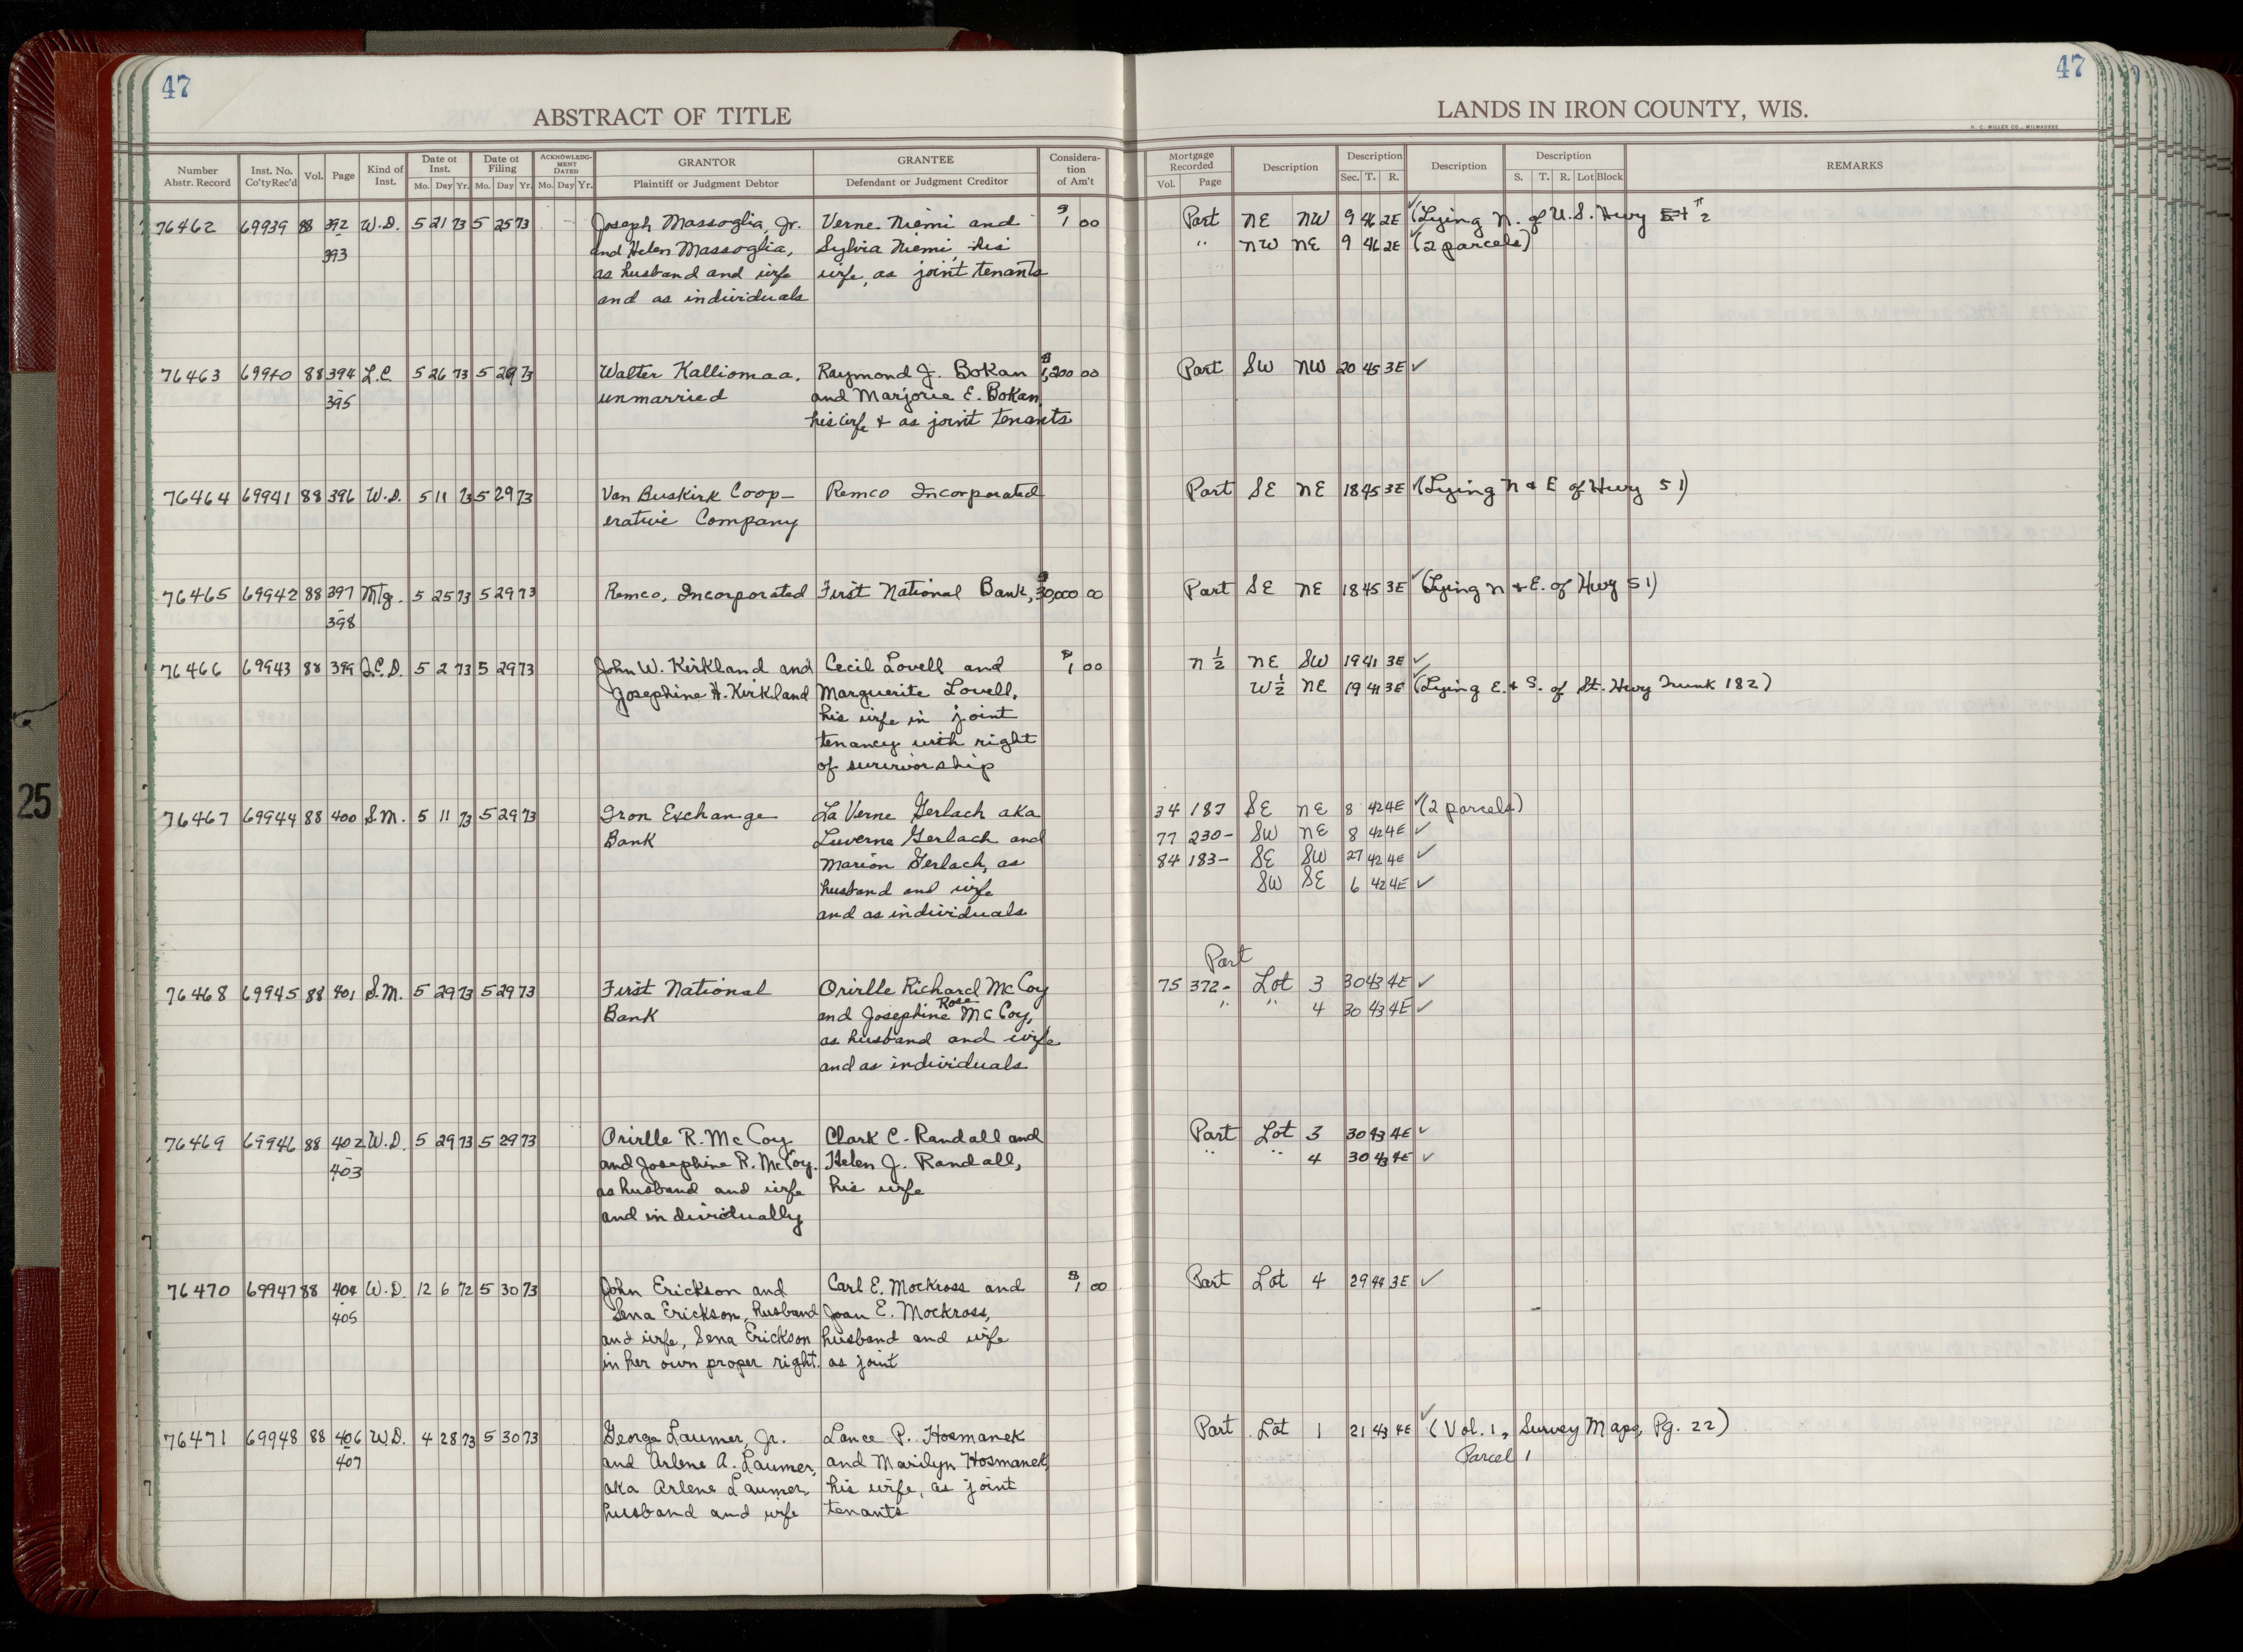 47
47
ABSTRACT OF TITLE
LANDS IN IRON COUNTY, WIS.
H. C. MILLER CO., MILWAUKEE
Number Abstr. Record
Inst. No. Co'tyRec'd
Vol.
Page
Kind of Inst.
Date of Inst.
Mo. Day Yr.
Date of Filing
Mo. Day Yr.
ACKNOWLEDGMENT DATED
Mo. Day Yr.
GRANTOR
Plaintiff or Judgment Debtor
GRANTEE
Defendant or Judgment Creditor
Consideration of Am't
Mortgage Recorded
Vol. Page
Description
Description
Sec. T. R.
Description
Description
S. T. R. Lot Block
REMARKS
76462 69939 88 392 W.D. 5 21 73 5 25 73 Joseph Massoglia, Jr. Verne Niemi and $1 00 Part NE NW 9 46 2E (Lying N. of U.S. Hwy 2
- 393 and Helen Massoglia, Sylvia Niemi, his " NW NE 9 46 2E (2 parcels)
as husband and wife wife, as joint tenants
and as individuals
76463 69940 88 394 L.C. 5 26 73 5 29 73 Walter Kalliomaa, Raymond J. Bokan $1,200 00 Part SW NW 20 45 3E ✓
- 395 unmarried and Marjorie E. Bokan,
his wife & as joint tenants
76464 69941 88 396 W.D. 5 11 73 5 29 73 Van Buskirk Coop- Remco Incorporated Part SE NE 18 45 3E ✓ (Lying N & E of Hwy 51)
erative Company
76465 69942 88 397 Mtg. 5 25 73 5 29 73 Remco, Incorporated First National Bank, $30,000 00 Part SE NE 18 45 3E ✓ (Lying N & E. of Hwy 51)
- 398
76466 69943 88 399 Q.C.D. 5 2 73 5 29 73 John W. Kirkland and Cecil Lovell and $1 00 N 1/2 NE SW 19 41 3E ✓
Josephine H. Kirkland Marguerite Lovell, W 1/2 NE 19 41 3E ✓ (Lying E. & S. of St. Hwy Trunk 182)
his wife in joint
tenancy with right
of survivorship
76467 69944 88 400 S.M. 5 11 73 5 29 73 Iron Exchange La Verne Gerlach aka 34 187 SE NE 8 42 4E ✓ (2 parcels)
Bank Luverne Gerlach and 77 230- SW NE 8 42 4E ✓
Marion Gerlach, as 84 183- SE SW 27 42 4E ✓
husband and wife SW SE 6 42 4E ✓
and as individuals
Part
76468 69945 88 401 S.M. 5 29 73 5 29 73 First National Orirlle Richard McCoy 75 372- Lot 3 30 43 4E ✓
Bank and Josephine Rose McCoy, " " 4 30 43 4E ✓
as husband and wife
and as individuals
76469 69946 88 402 W.D. 5 29 73 5 29 73 Orirlle R. McCoy Clark C. Randall and Part Lot 3 30 43 4E ✓
- 403 and Josephine R. McCoy, Helen J. Randall, " " 4 30 43 4E ✓
as husband and wife his wife
and individually
76470 69947 88 404 W.D. 12 6 72 5 30 73 John Erickson and Carl E. Mockross and $1 00 Part Lot 4 29 44 3E ✓
- 405 Sena Erickson, husband Joan E. Mockross,
and wife, Sena Erickson husband and wife
in her own proper right. as joint
76471 69948 88 406 W.D. 4 28 73 5 30 73 George Laumer, Jr. Lance P. Hosmanek Part Lot 1 21 43 4E ✓ (Vol. 1, Survey Maps, Pg. 22)
- 407 and Arlene A. Laumer, and Marilyn Hosmanek, Parcel 1
aka Arlene Laumer, his wife, as joint
husband and wife tenants
25